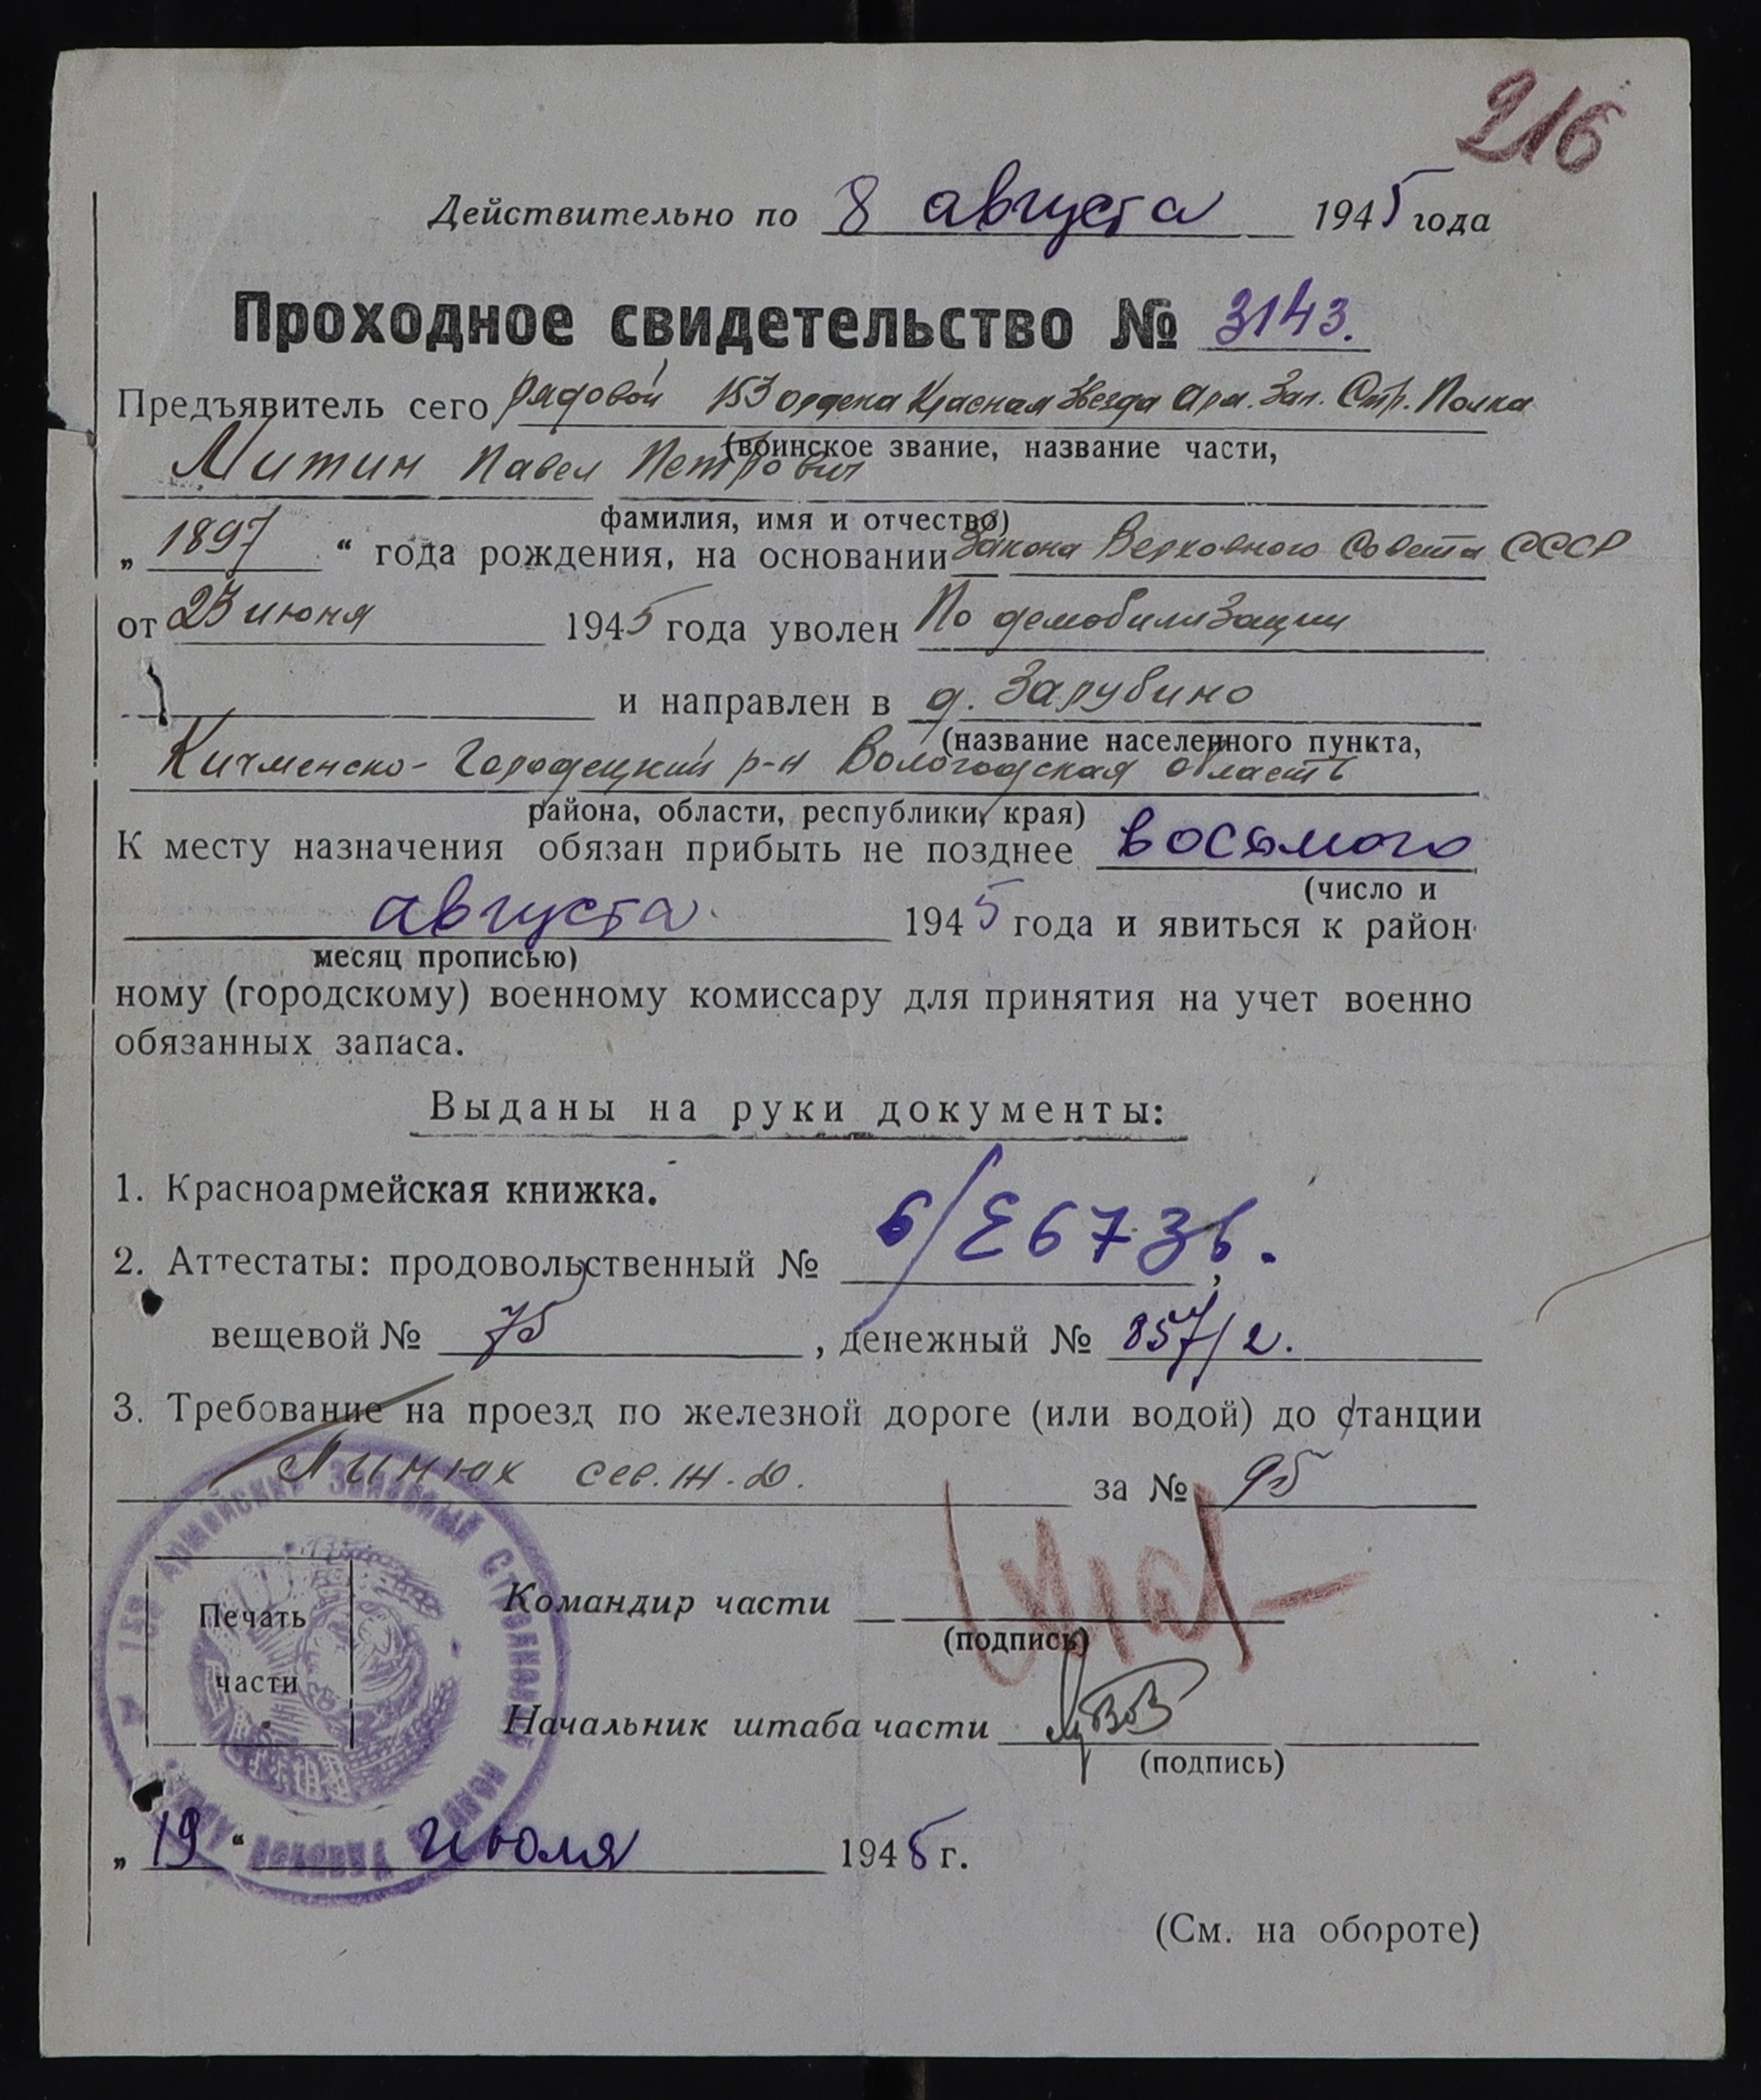 216
Действительно по 8 августа 1945 года
Проходное свидетельство № 3143.
Предъявитель сего рядовой 153 ордена Красная Звезда Арм. Зап. Стр. Полка
(воинское звание, название части,
Митин Павел Петрович
фамилия, имя и отчество)
„ 1897 “ года рождения, на основании Закона Верховного Совета СССР
от 23 июня 1945 года уволен По демобилизации
и направлен в д. Зарубино
(название населенного пункта,
Кичменско-Городецкий р-н Вологодская область
района, области, республики, края)
К месту назначения обязан прибыть не позднее восьмого
(число и
августа 1945 года и явиться к район-
месяц прописью)
ному (городскому) военному комиссару для принятия на учет военно
обязанных запаса.
Выданы на руки документы:
1. Красноармейская книжка.
2. Аттестаты: продовольственный №
вещевой № 75, денежный № 857/2.
3. Требование на проезд по железной дороге (или водой) до станции
Пинюх сев. ж.д. за № 95
Печать
части
Командир части
(подпись)
Начальник штаба части
(подпись)
„19“ июля 1945 г.
(См. на обороте)